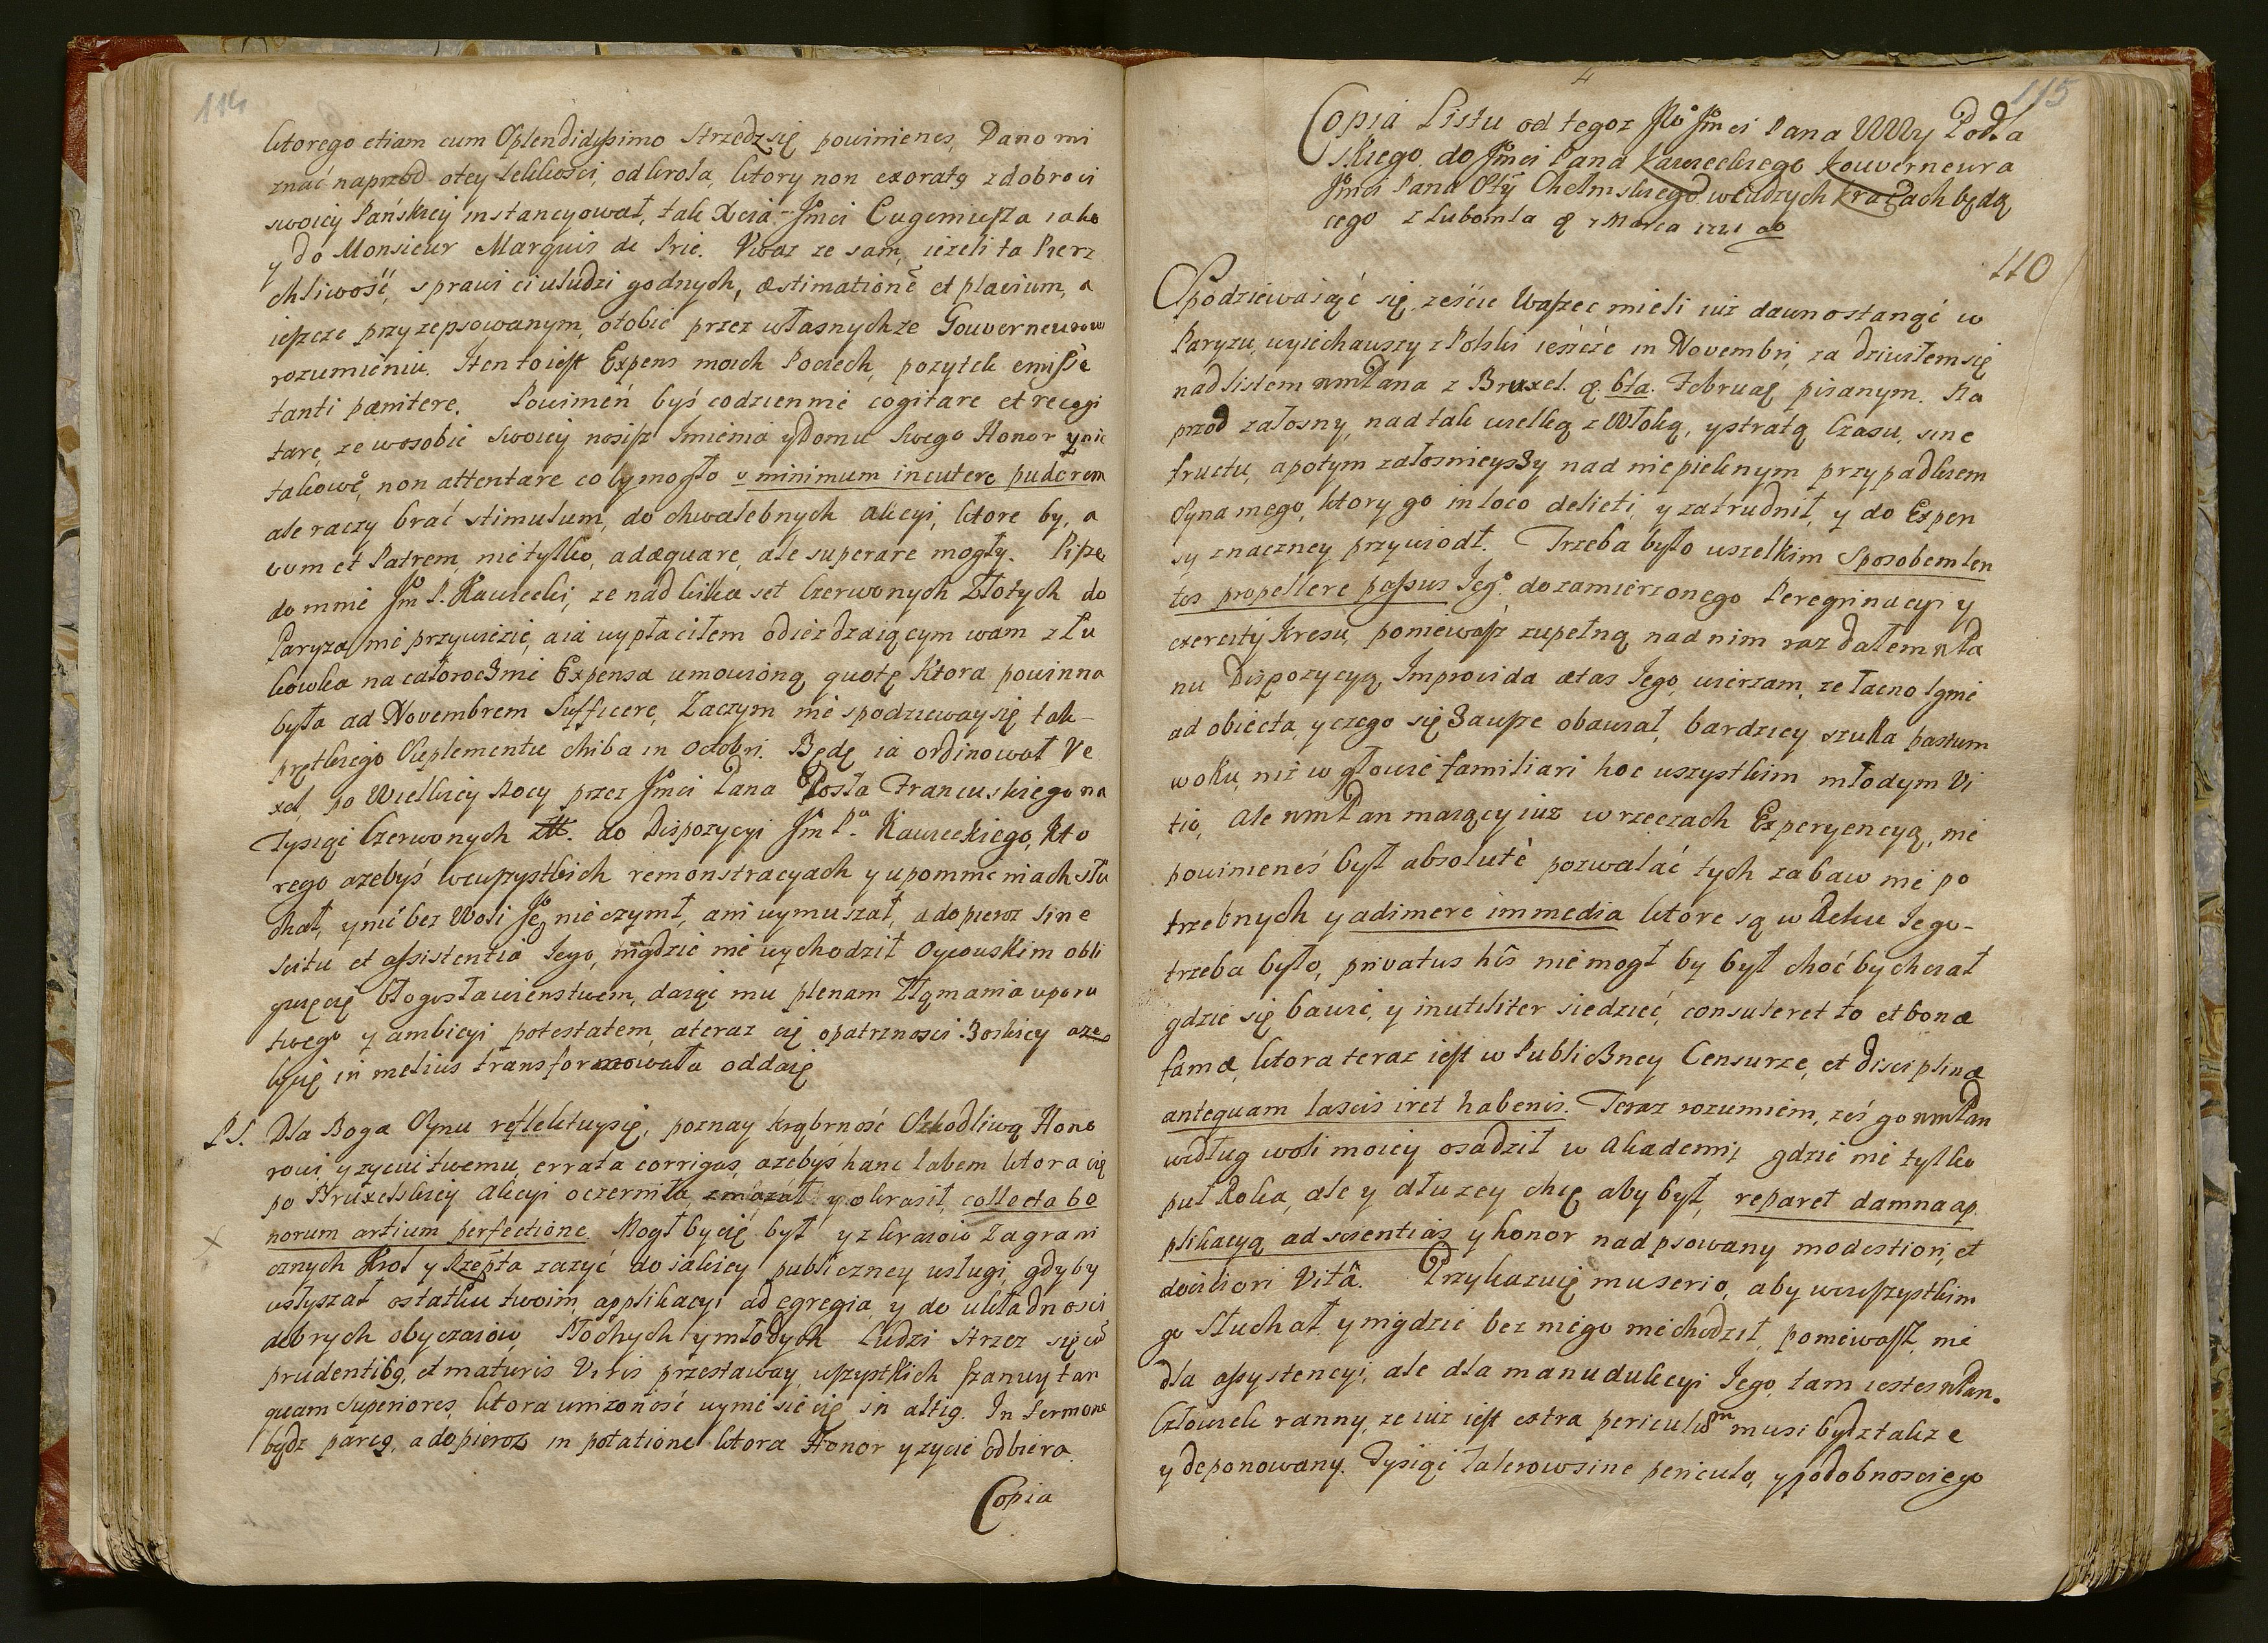 114
ktorego etiam cum Splendidissimo Strzedz się powinienes, Dano mi
znać naprzod otey lekkości, od krola, ktory non exoratg z dobroci
swoiey Pańskiey instancyował, tak Xcia Jmci Eugeniusza iako
y do Monsieur Marquis de Prie. Uwaz ze sam, iezeli ta Pierz
chliwość, sprawi ci u ludzi godnych, æstimationē et placium, a
ieszcze przy zepsowanym, otobie przez własnychze Gouverneurow
rozumieniu. Iten to iest Expens moich Pociech, pozytek emisse
tanti pænitere. Powinień byś codziennie cogitare et recogi
tare, ze wosobie swoiey nosisz Imienia y Domu Swego Honor y nic
takowe, non attentare co by mogło v minimum incutere pudorem
ale raczy brać stimulum, do chwalebnych akcyi, ktore by, a
vum et Patrem, nie tylko, adæquare, ale superare mogły. Pisze
do mnie Jm P. Kawiecki, ze nad kilka set Czerwonych Złotych do
Paryza nie przywiezie, aia wypłaciłem odiezdzaiącym wam z Tu
kowka na całoroczne Expensa umowioną quotę Ktora powinna
była ad Novembrem Sufficere, Zaczym nie spodzieway się tak-
prętkiego Suplementu chiba in Octobri. Będę ia ordinował We
xel, po Wielkiey Nocy przez Jmci Pana Posła Francuskiego na
Tysiąc Czerwonych Zlt. do Dispozycyi Jm Pa. Kawieckiego, Kto
rego azebyś we wszystkich remonstracyach y upomnieniach słu
chał, y nic bez Woli Jeg nie czymł, ani wymuszał, a dopieroz sine
scitu et assistentia Iego, nigdzie nie wychodził Oycowskim obli
guię cię błogosławienstwem, daiąc mu plenam Złamania uporu
twego y ambicyi potestatem, a teraz cię opatrznosci Boskiey aze
by cię in melius transformowała oddaię
P.S. Dla Boga Synu reflektuy się, poznay krąbrność Szkodliwą Hono
rowi y zyciu twemu, errata corrigas, azebyś hanc labem ktora cię
po Bruxelskiey akcyi oczerniła, zmazał y okrasił, collecta bo
norum artium perfectione. Mogł by cię był y z kraiow Zagrani
cznych Krol y Rzepta zazyć do iakiey publiczney usługi, gdyby
usłyszał ostatku twoim applikacyi ad egregia y do układnosci
dobrych obyczaiow, Płochych y młodych Ludzi Strzez się co
prudentibg, et maturis Viris przestaway, wszystkich szanuy tan
quam Superiores, ktora unizoność wyniesie cię in altig. In Sermone
bądz parcg, a dopieroz in potatione ktora Honor y zycie odbiera.
Copia
4
115
Copia Listu od tegoz Jło Jmci Pana WWdy Podla
skiego do Jmci Pana Kawieckiego Gouverneura
Jmci Pana Stty Chełmskiego w cudzych Kraiach będą
cego z Lubomla d 7 Marca 1721 ao
110
Spodziewaiąć się, zeście Waszec mieli iuz dawno stanąć w
Paryzu, wyiechawszy z Polski ieszcze in Novembri, za dziwiłem się
nad listem wmPana z Bruxel. d. 6ta. Februaÿ pisanym. Na
przod załosny, nad tak wielką zWłoką, y stratą Czasu, sine
fructu, a potym załosnieyszy nad niepieknym przypadkiem
Syna mego, ktory go in loco delicti, y zatrudnił, y do Expen
sy znaczney przywiodł. Trzeba było wszelkim Sposobem len
tos propellere passus Iego, do zamierzonego Peregrinacyi y
exercitÿ Kresu, poniewasz zupełną nad nim raz dałem wPa
nu Dispozycyą, Improvida ætas Iego, wierzam, ze łacno lgnie
ad obiecta, y czego się zawsze obawiał, bardziey szuka pastum
w oku, niz w głowie familiari hoc wszystkim młodym Vi
tio, Ale wmPan maiący iuz w rzeczach Experyencyą, nie
powinieneś był absoluté pozwalać tych zabaw nie po
trzebnych y adimere immedia ktore są w Reku Iego-
trzeba było, privatus hîs nie mogł by był choć by chciał
gdzie się bawić, y inutiliter siedzieć, consuleret to et bonæ
famæ, ktora teraz iest w Publiczney Censurze, et disciplinæ
antequam lascis iret habenis. Teraz rozumiem, ześ go wmPan
według woli moiey osadził w Akademii gdzie nie tylko
puł Roka, ale y dłuzey chcę aby był, reparet damna ap
plikacyą ad scientias y honor nadpsowany modestiori, et
dociliori Vitâ. Przykazuię mu serio, aby we wszystkim
go Słuchał y nigdzie bez niego nie chodził, poniewasz nie
dla assystencyi, ale dla manudukcyi Iego, tam iestes wPan.
Człowiek ranny, ze iuz iest extra periculum musi bydz takze
y deponowany. Tysiąc Talerow sine periculo, y podobno sciego